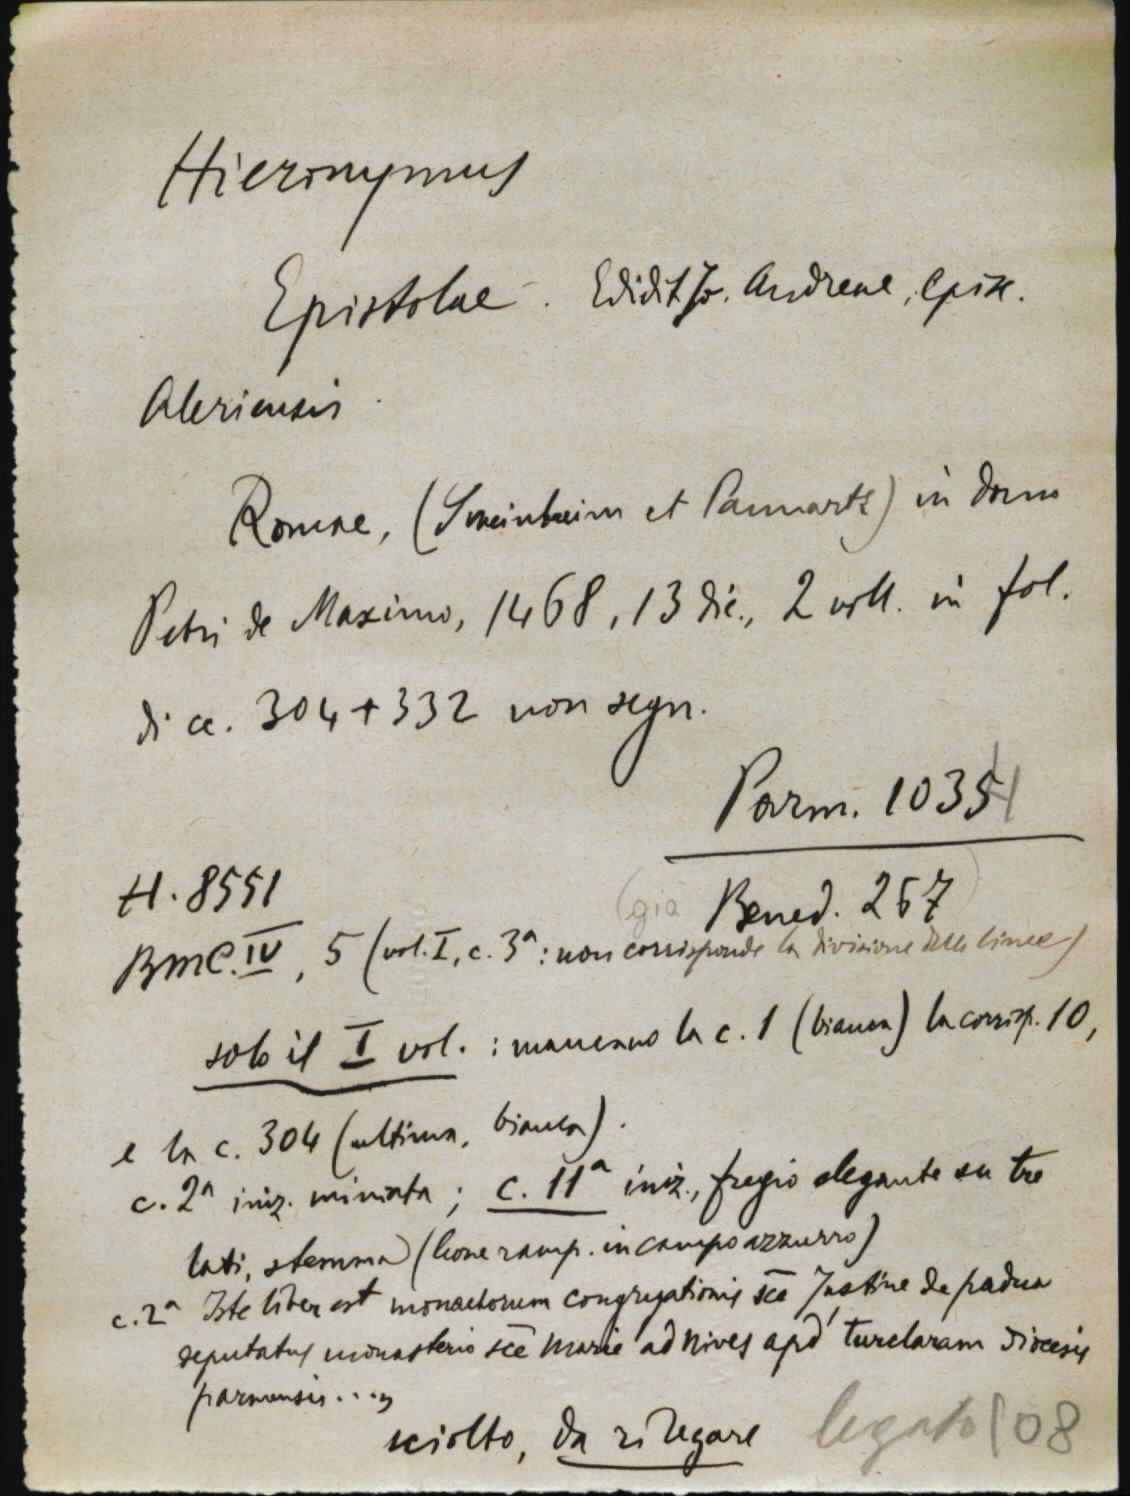 Hieronymus
Epistolae. Edidit Jo. Andreae, episc.
Aleriensis.
Romae, (Sweinheim et Pannartz) in domo
Petri de Maximo, 1468, 13 dic., 2 voll. in fol.
di cc. 304 + 332 non segn.
Parm. 1035
H. 8551
(già Bened. 267)
BMC. IV, 5 (vol. I, c. 3ª: non corrisponde la divisione delle linee)
solo il I vol. : mancano la c. 1 (bianca) la corrisp. 10,
e la c. 304 (ultima, bianca).
c. 2ª iniz. miniata ; c. 11ª iniz., fregio elegante su tre
lati, stemma (leone ramp. in campo azzurro)
c. 2ª Iste liber est monachorum congregationis scē Justine de padua
deputatus monasterio scē Marie ad nives apd' turclaram diocesis
parmensis....
sciolto, da rilegare legato 08